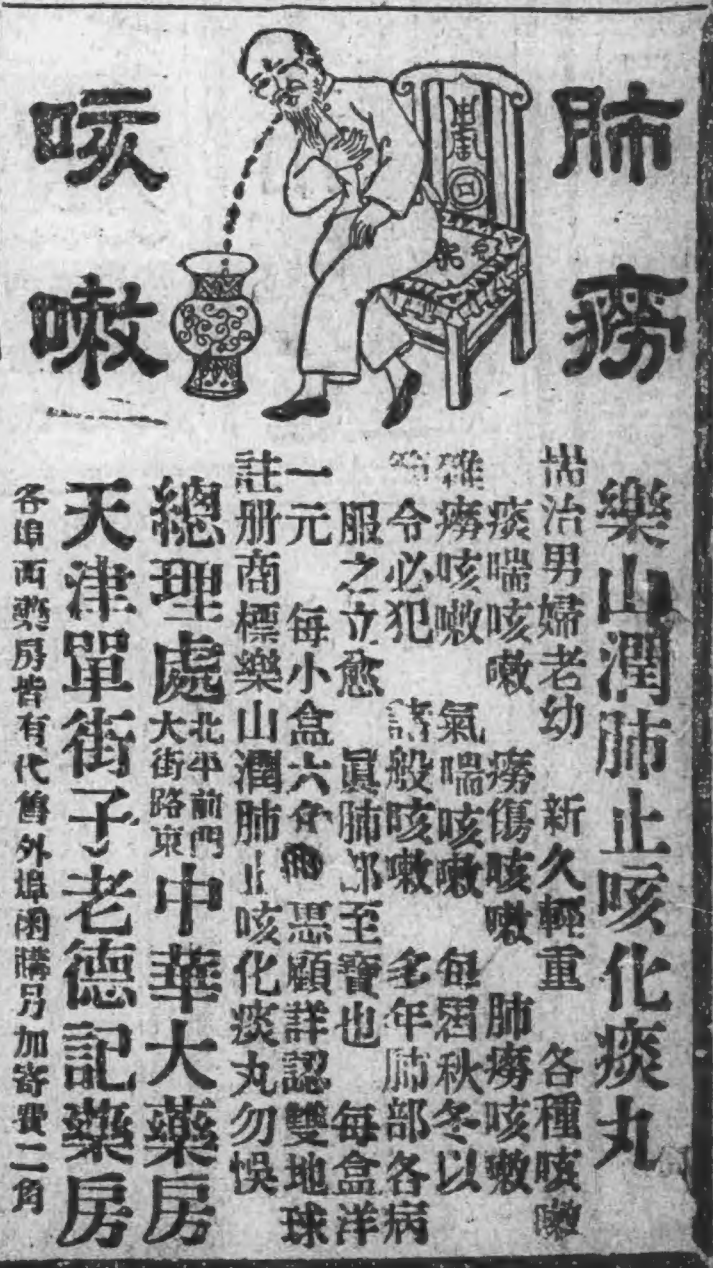 肺癆
咳嗽
樂山潤肺止咳化痰丸
耑治男婦老幼 新久輕重 各種咳嗽
痰喘咳嗽 癆傷咳嗽 肺癆咳嗽
雜癆咳嗽 氣喘咳嗽 每屆秋冬以
節令必犯 諸般咳嗽 多年肺部各病
服之立愈 眞肺部至寶也 每盒洋
一元 每小盒六角 惠顧詳認雙地球
註册商標樂山潤肺止咳化痰丸勿悞
總理處北平前門大街路東中華大藥房
天津單街子老德記藥房
各埠西藥房皆有代售外埠函購另加寄費二角